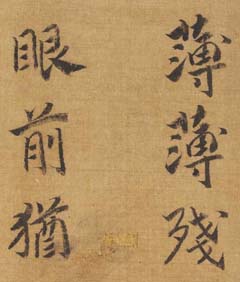 薄薄殘
眼前猶